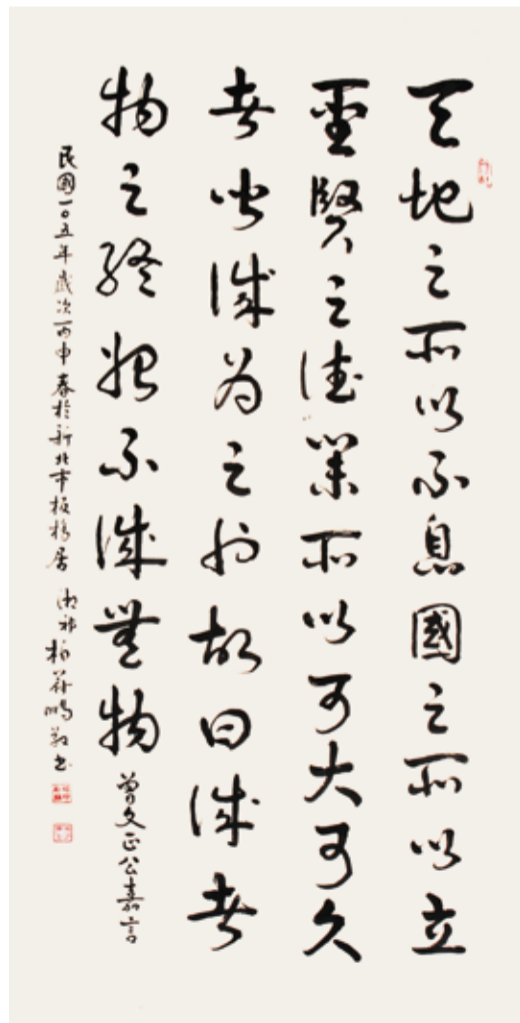 天地之所以不息國之所以立
聖賢之德業所以可大可久
者皆誠為之也故曰誠者
物之終始不誠無物
曾文正公嘉言
民國一〇五年歲次丙申春於新北市板橋居 湘祁柏蔚鵬敬書